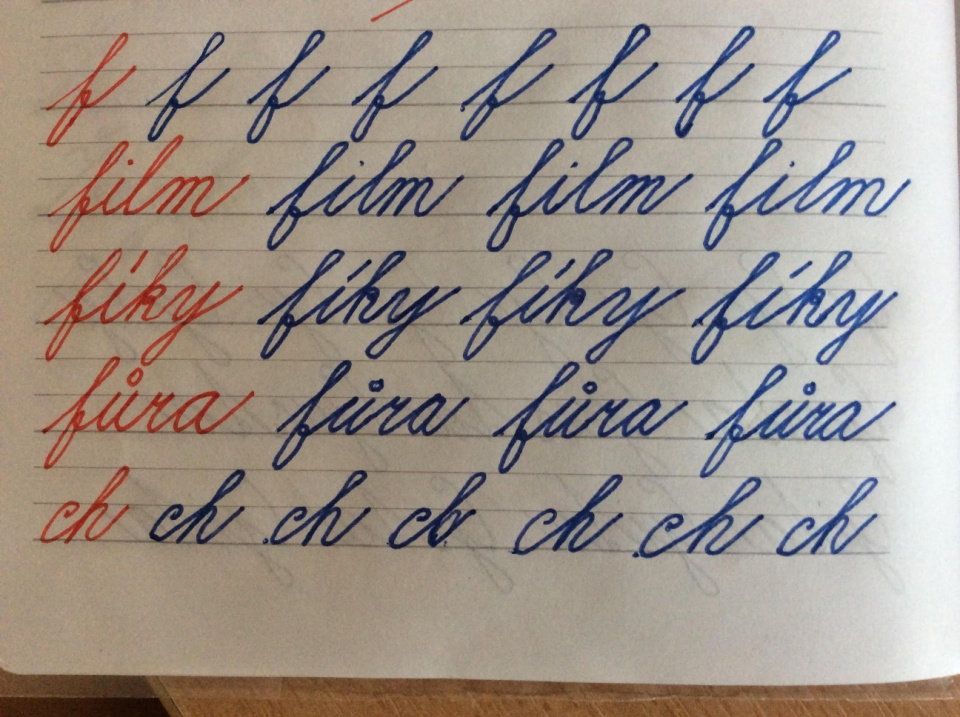 f f f f f f f f
film film film film
fíky fíky fíky fíky
fůra fůra fůra fůra
ch ch ch ch ch ch ch